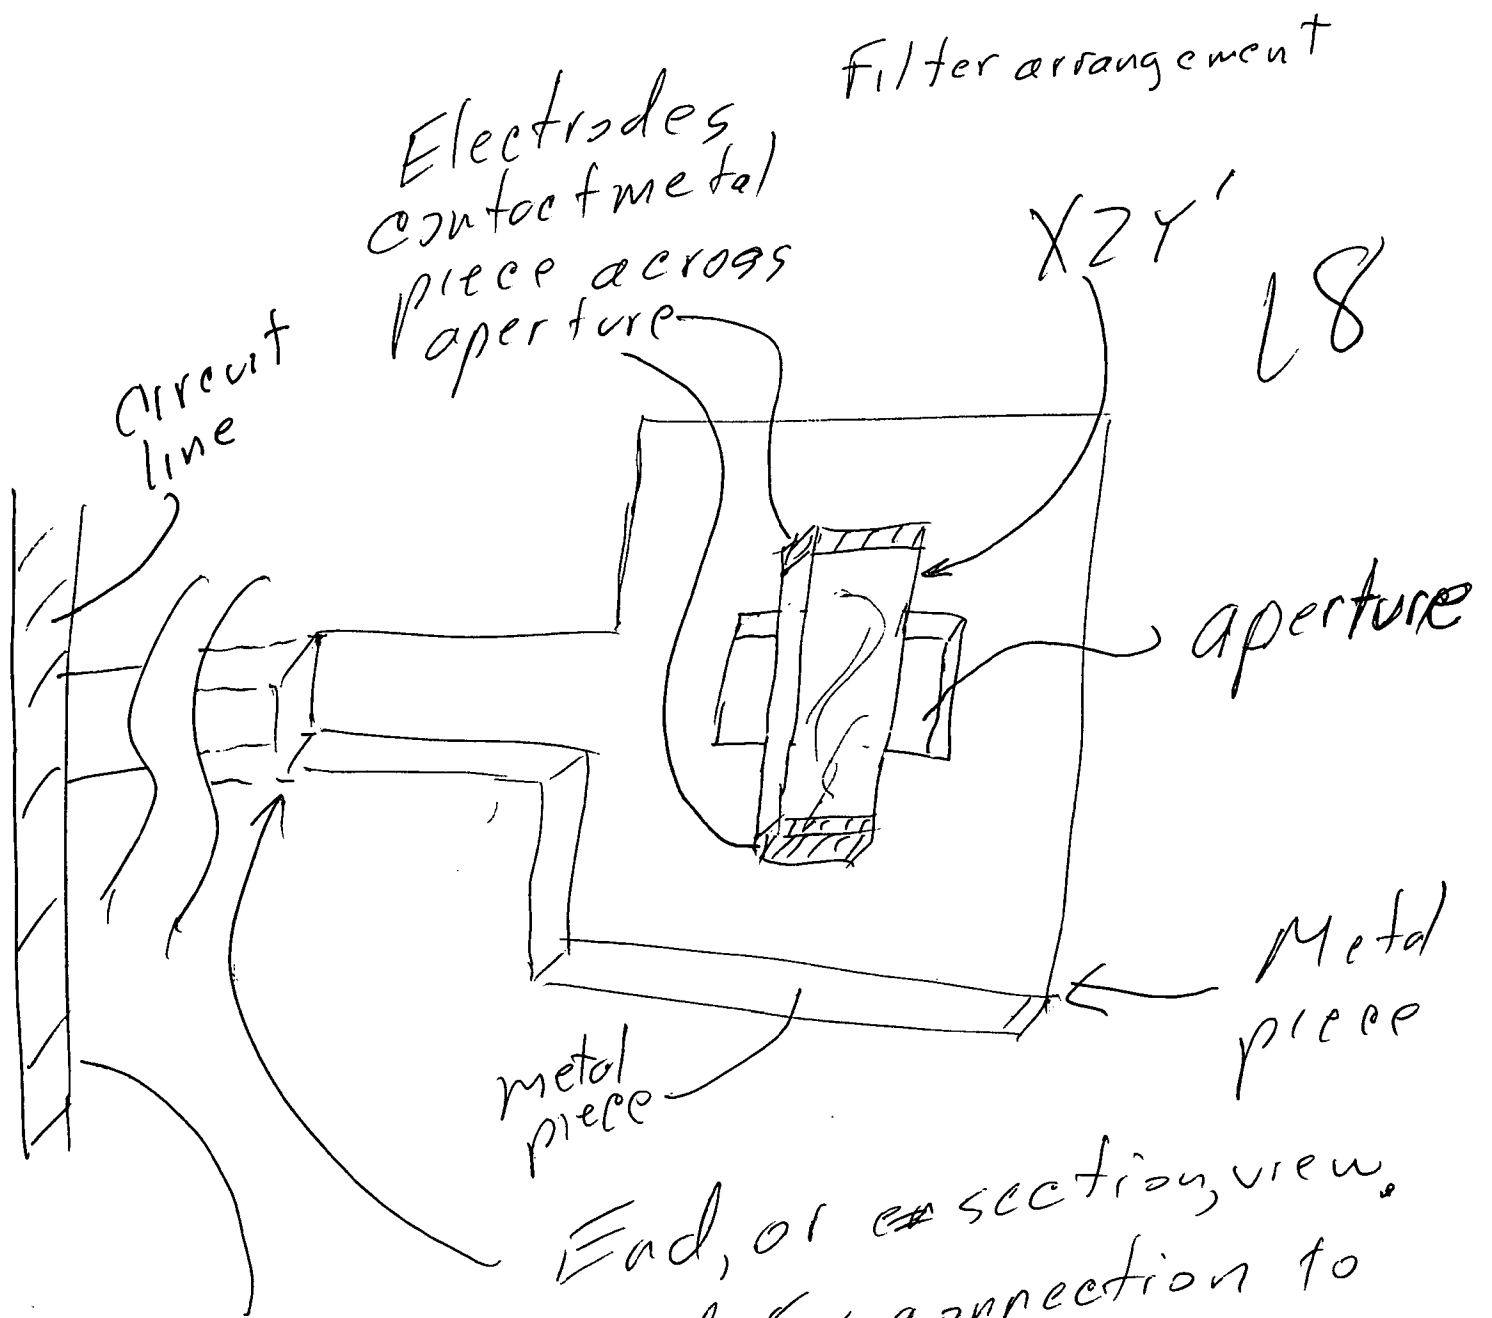 Filter arrangement
Electrodes
contact metal
piece across
aperture
X2Y'
18
circuit
line
aperture
Metal
piece
metal
piece
End, or section, view.
connection to